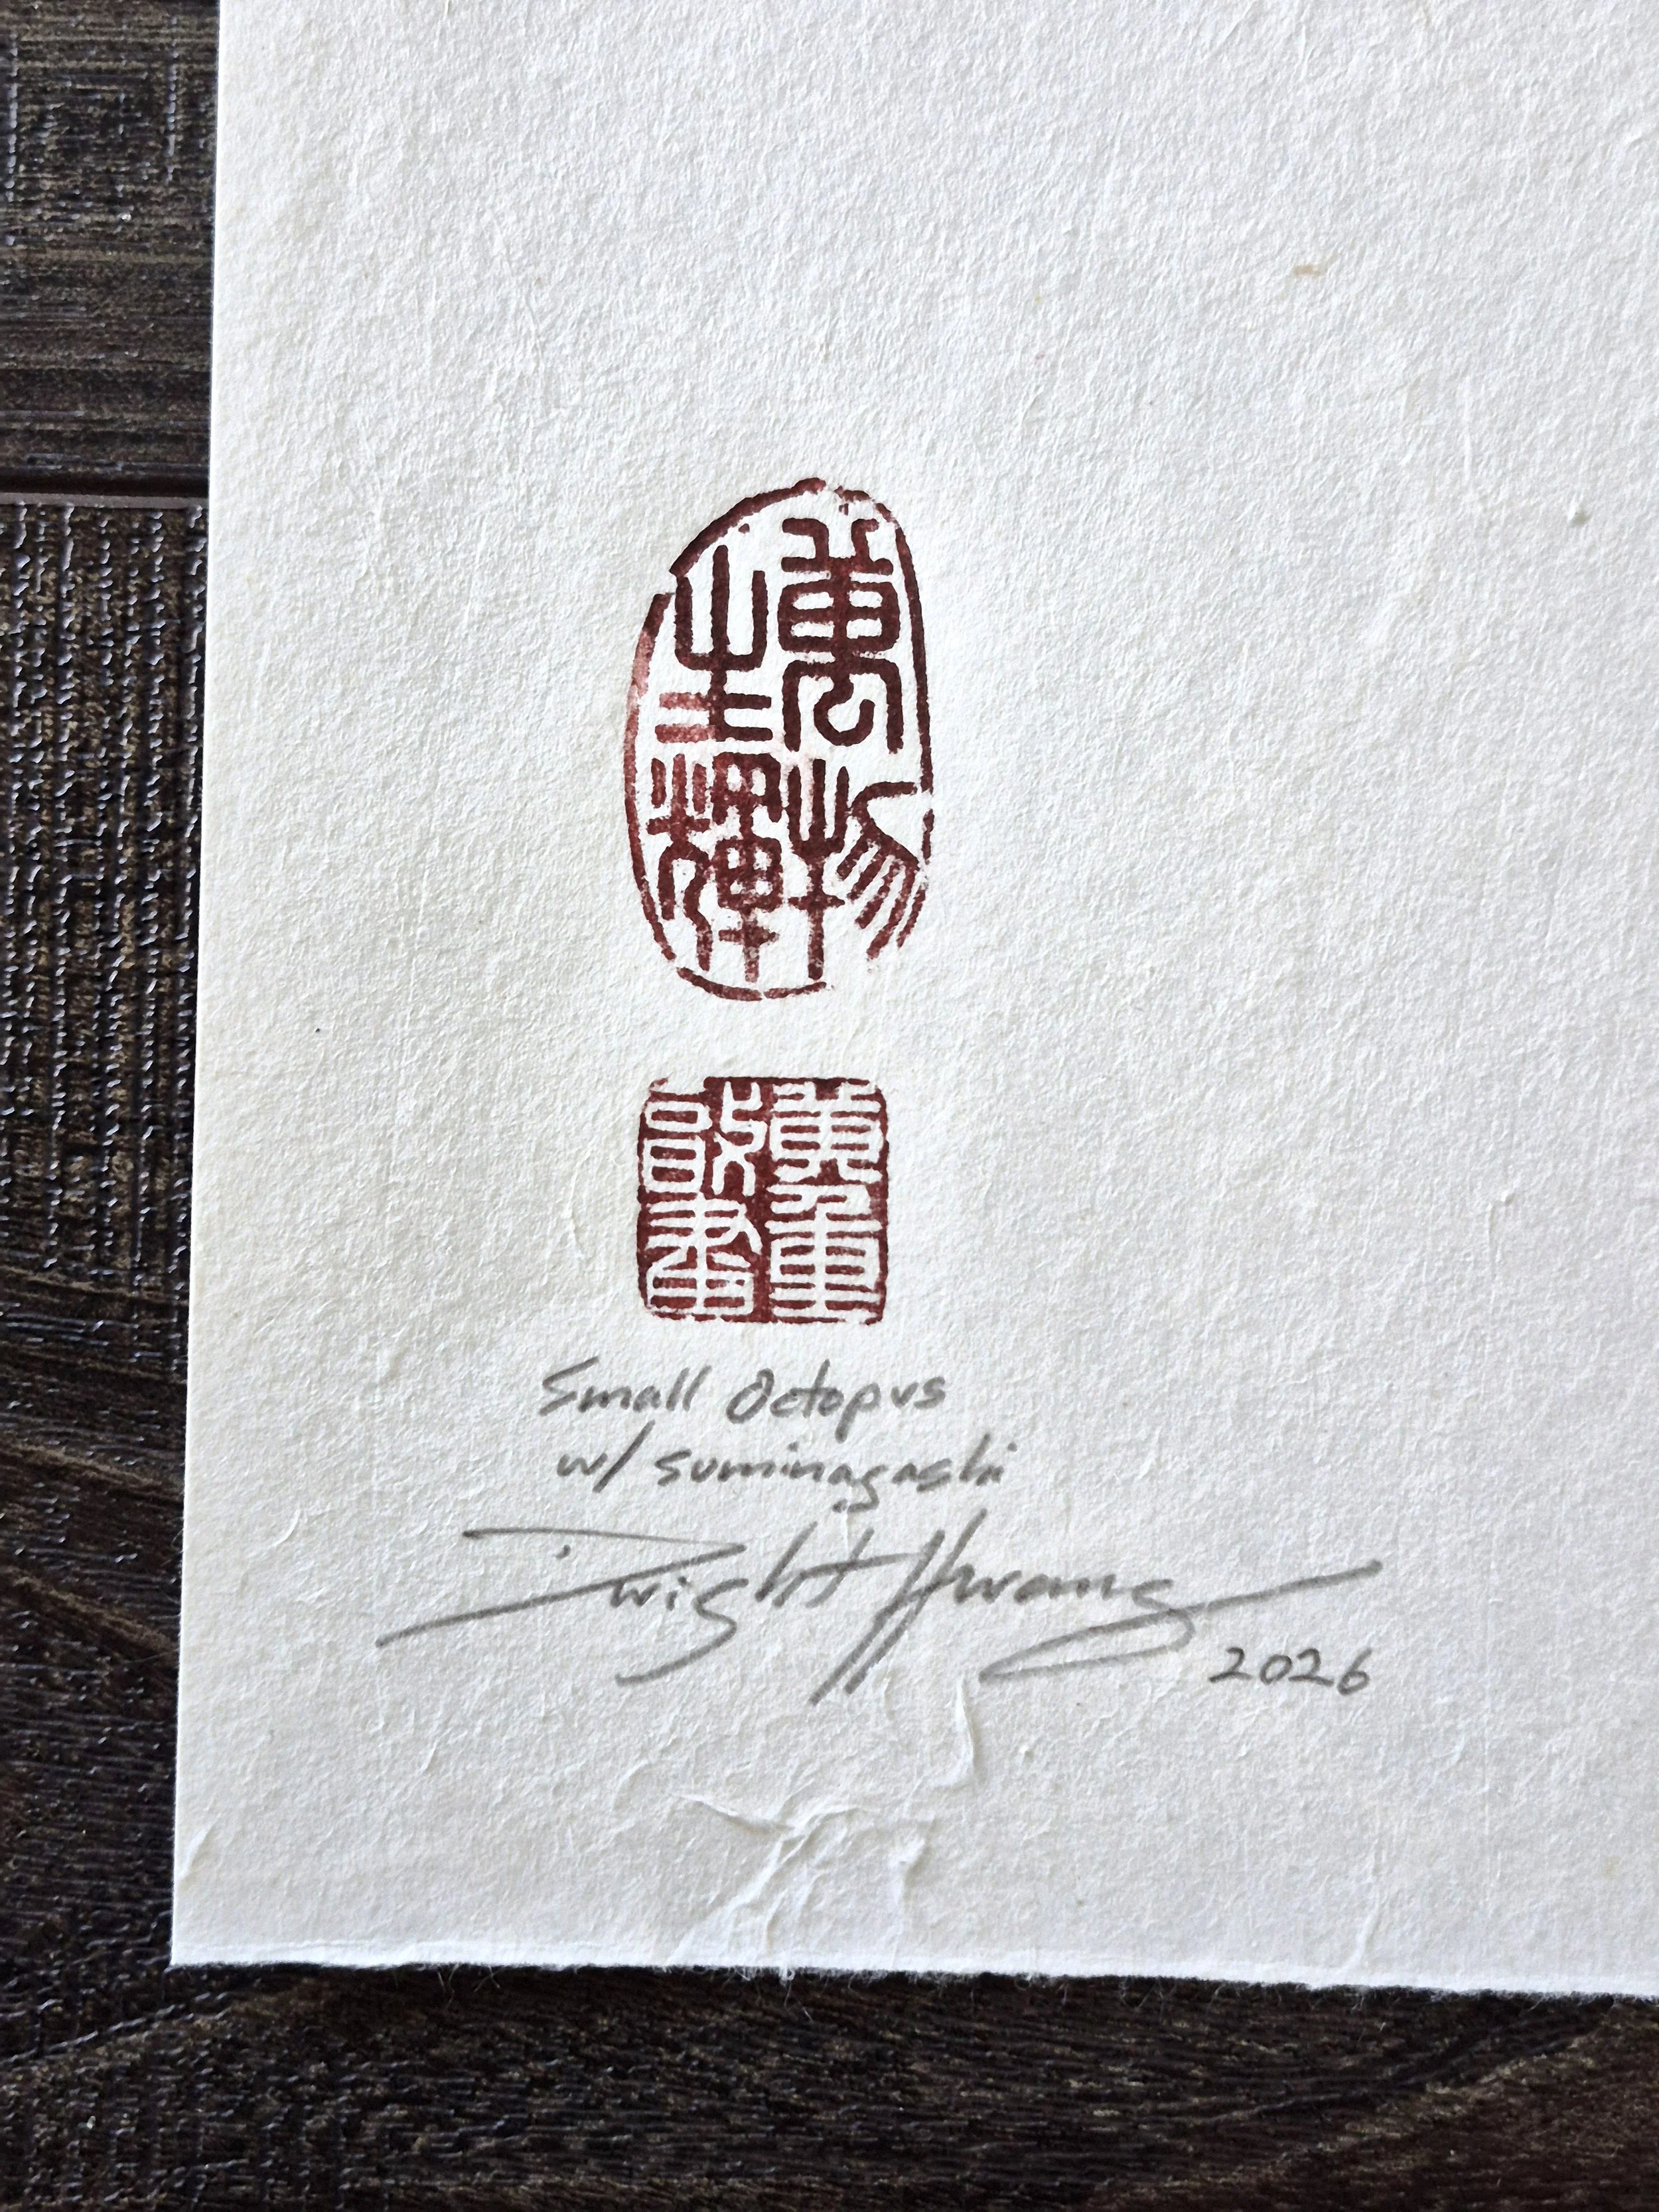 萬物
生輝
Small Octopus
w/ suminagashi
Dwight Hwang
2026